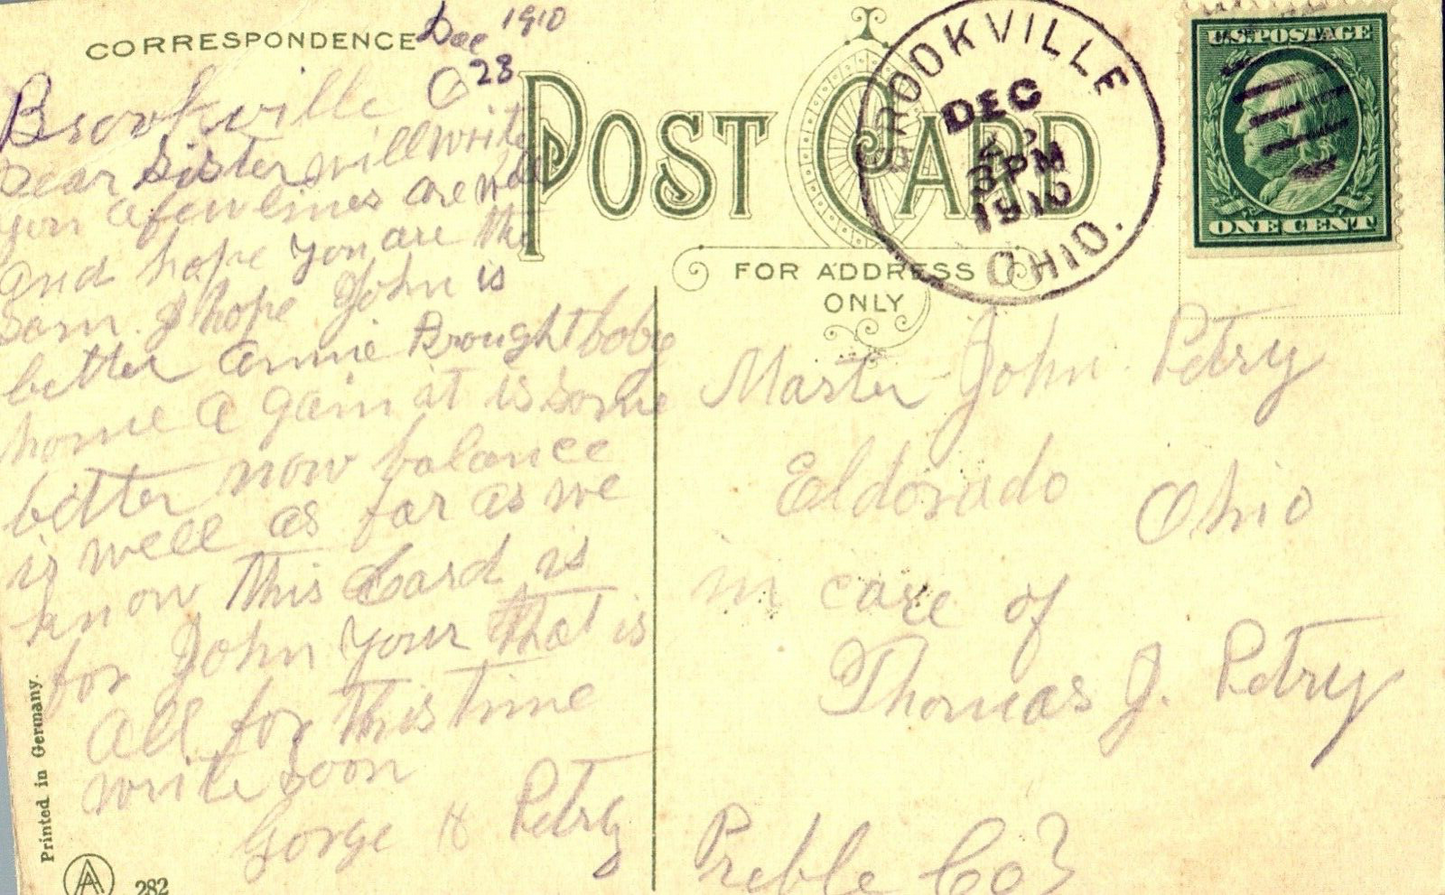 CORRESPONDENCE Dec 1910
Brookville O 28
Dear Sister will write
you a few lines are well
and hope you are the
Sam. I hope John is
better Annie Brought baby
home a gain it is some
better now balance
is well as far as we
know This Card is
for John your that is
all for this time
write soon
Gorge H Petry
Printed in Germany.
A
282
POST CARD
FOR ADDRESS
ONLY
BROOKVILLE
DEC
3PM
1910
OHIO.
U.S. POSTAGE
ONE CENT
Master John Petry
Eldorado Ohio
in care of
Thomas J. Petry
Preble Co